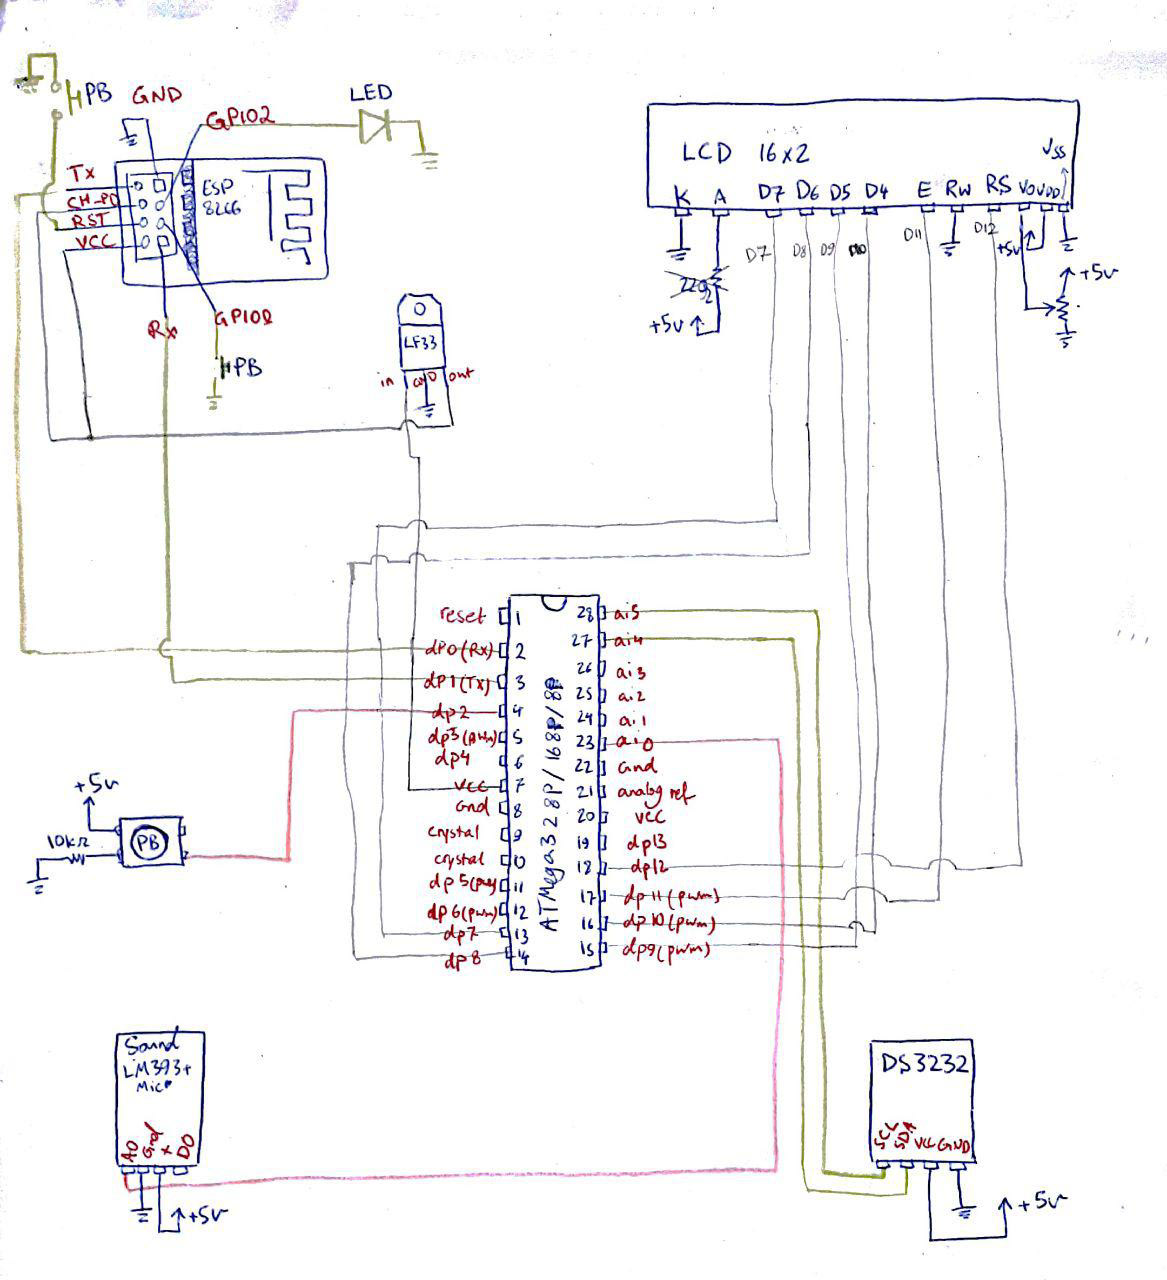 PB
GND
GPIO2
LED
Tx
CH-PD
RST
VCC
ESP
8266
Rx
GPIO0
PB
LF33
in
GND
out
LCD 16x2
Vss
K A D7 D6 D5 D4 E RW RS VO VDD
D7 D8 D9 D10 D11 D12
220Ω
+5v
+5v
+5v
reset 1
dp0(Rx) 2
dp1(Tx) 3
dp2 4
dp3(PWM) 5
dp4 6
VCC 7
Gnd 8
crystal 9
crystal 10
dp5(PWM) 11
dp6(pwm) 12
dp7 13
dp8 14
ATMega328P/168P/8P
28 ai5
27 ai4
26 ai3
25 ai2
24 ai1
23 ai0
22 Gnd
21 analog ref
20 VCC
19 dp13
18 dp12
17 dp11(pwm)
16 dp10(pwm)
15 dp9(pwm)
+5v
10kΩ
PB
Sound
LM393+
Mic
A0 Gnd + D0
+5v
DS3232
SCL SDA VCC GND
+5v